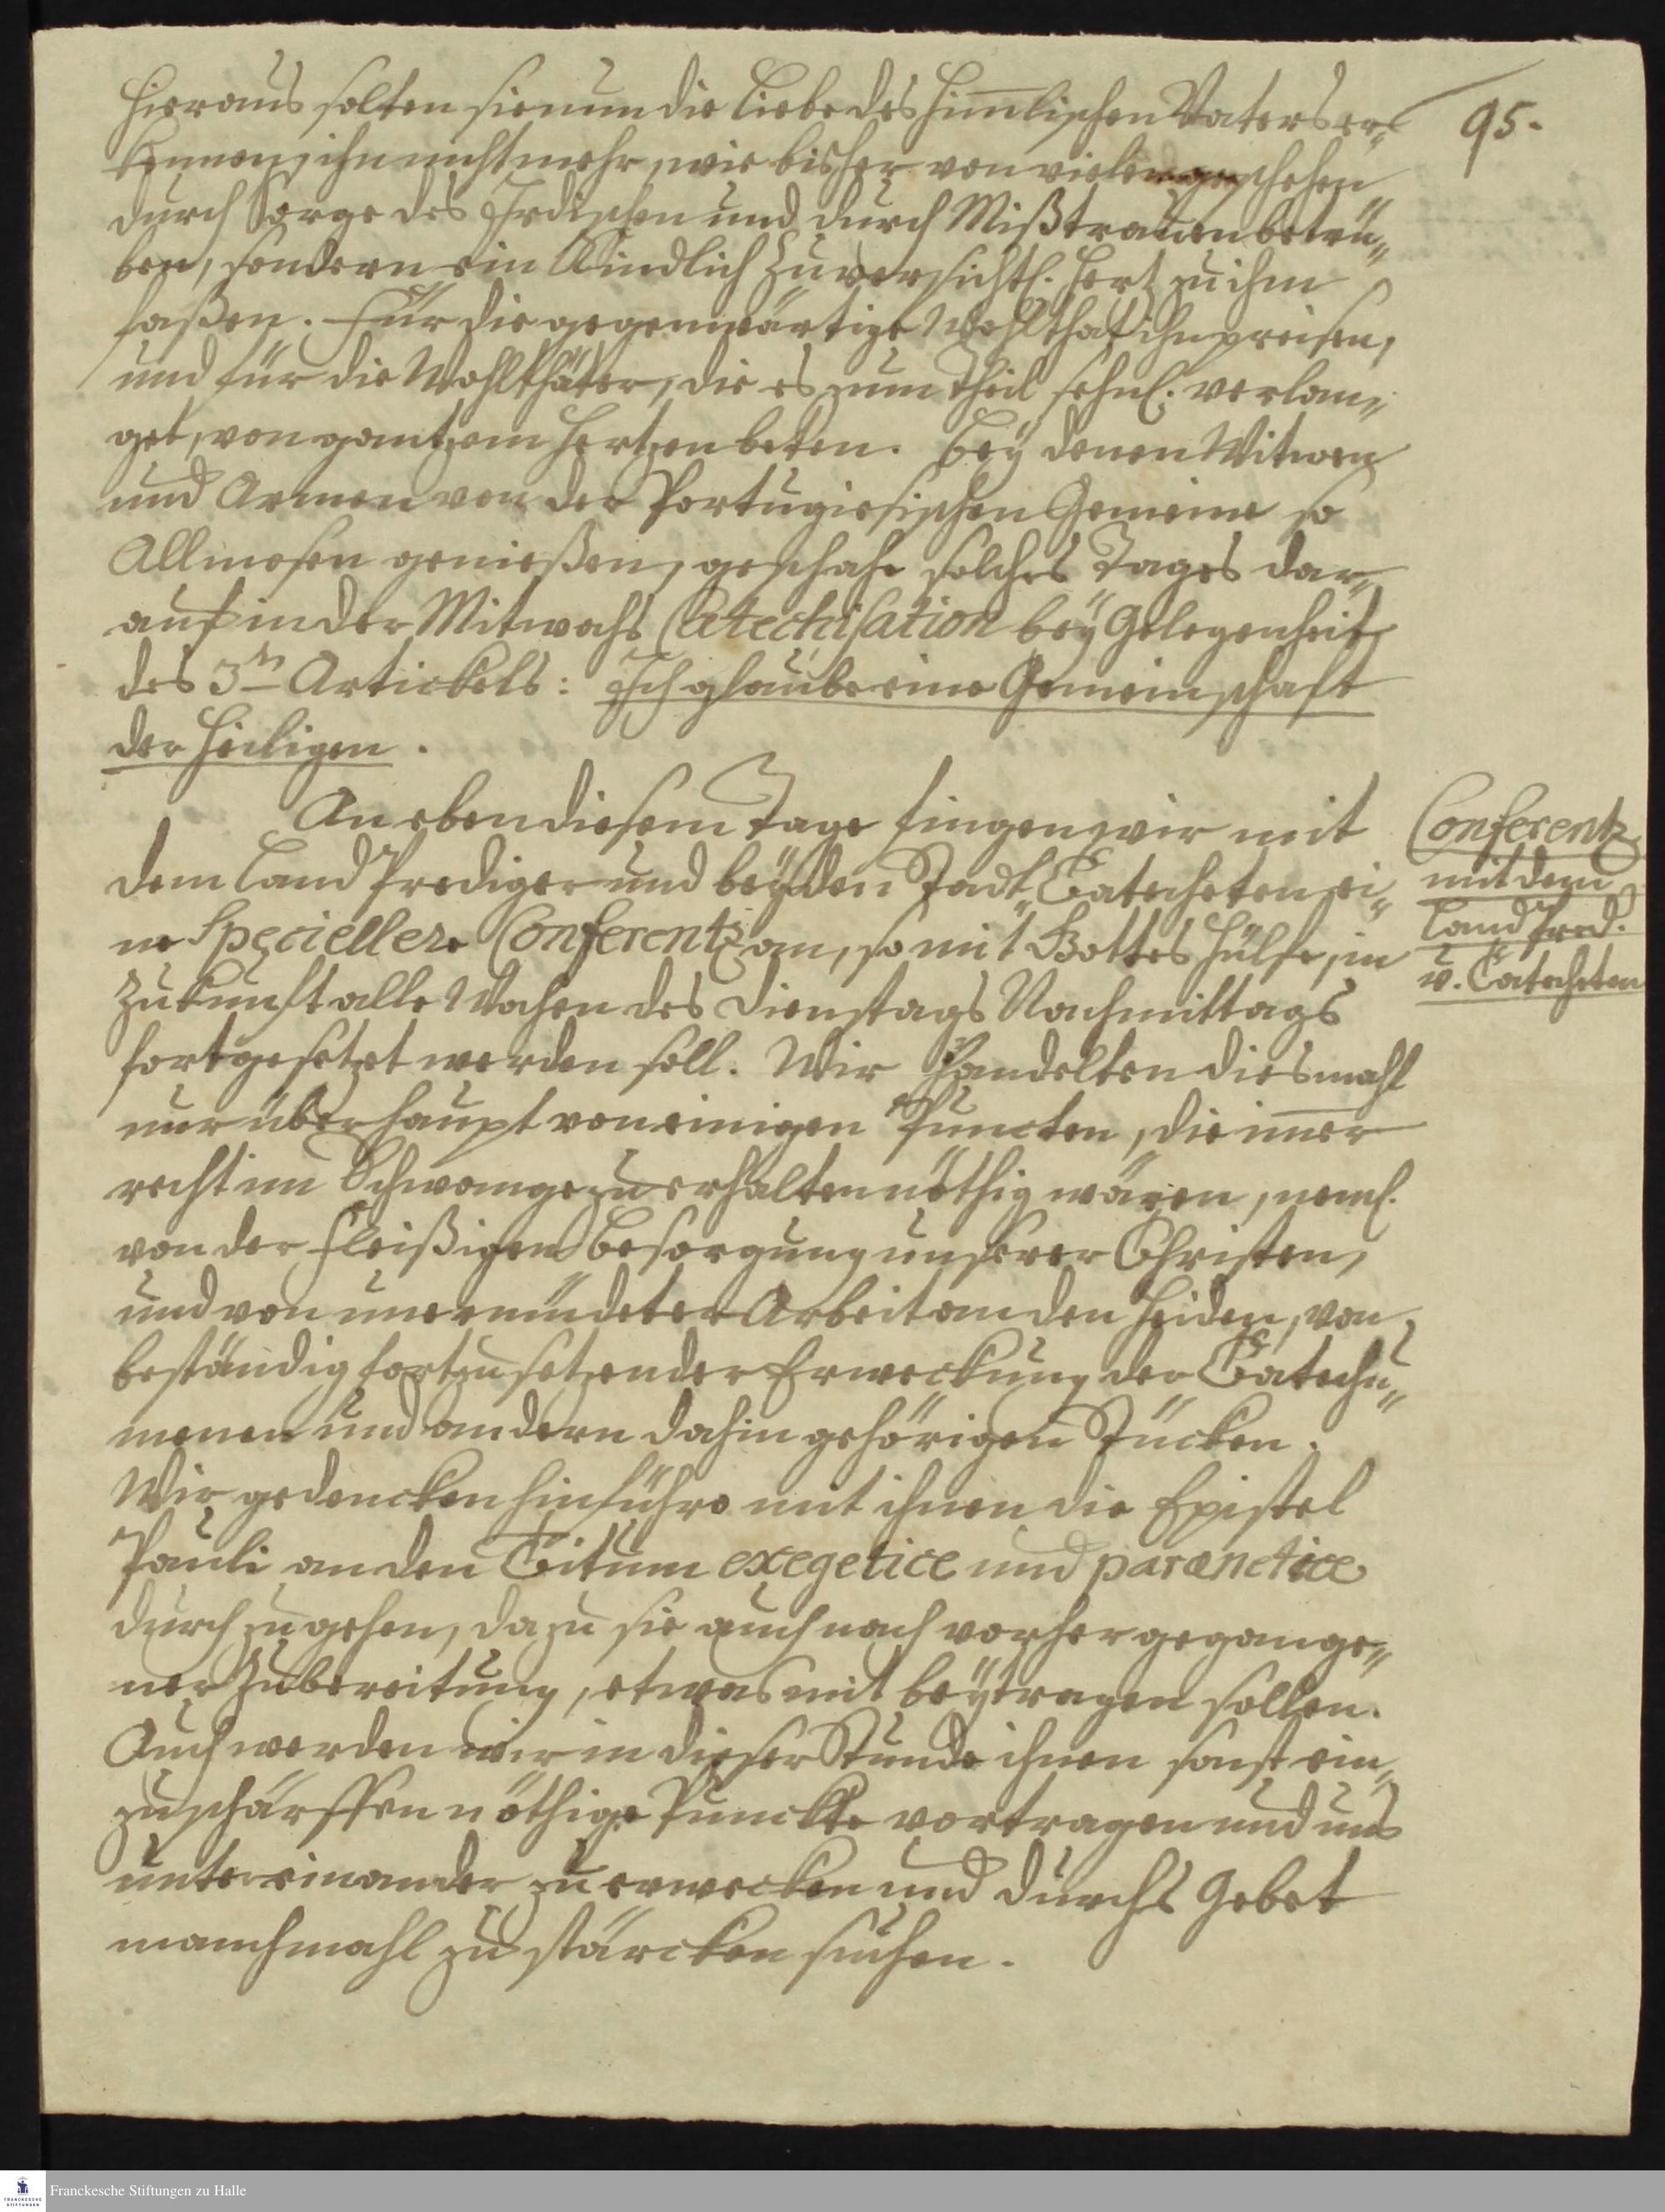 95.
Hieraus solten sie nun die Liebe des himlischen Vaters er-
kennen, ihn nicht mehr, wie bisher von vielen geschehen
durch Sorge des Irdischen und durch Mißtrauen betrü-
ben, sondern ein Kindlich Zuversichtl. Hertz zu ihm
faßen. Für die gegenwärtige Wohlthat ihn preisen,
und für die Wohlthäter, die es zum Theil sehnl. verlan-
get, von gantzem Hertzen beten. Bey denen Witwen
und Armen von der Portugiesischen Gemeine so
Allmosen genießen, geschahe solches Tages dar-
auf in der Mitwochs Catechisation bey Gelegenheit
des 3ten Artickels: Ich glaube eine Gemeinschaft
der Heiligen.
An eben diesem Tage fingen wir mit
dem Land Prediger und beyden Stadt-Catecheten ei-
ne Speciellere Conferentz an, so mit Gottes Hülfe, in
Zukunft alle Wochen des Dienstags Nachmittags
fortgesetzet werden soll. Wir handelten diesmahl
nur überhaupt von einigen Puncten, die imer
recht im Schwange zu erhalten nöthig wären, neml.
von der fleißigen Besorgung unserer Christen,
und von unermüdeter Arbeit an den Heiden, von
beständig fortzusetzender Erweckung der Catechu-
menen und andern dahin gehörigen Stücken.
Wir gedencken hinführo mit ihnen die Epistel
Pauli an den Titum exegetice und parænetice
durchzugehen, dazu sie auch nach vorhergegange-
ner Zubereitung, etwas mit beytragen sollen.
Auch werden wir in dieser Stunde ihnen sonst ein-
zuschärffen nöthige Punckte vortragen und uns
untereinander zu erwecken und durchs Gebet
manchmahl zu stärcken suchen.
Conferentz
mit dem
Land Pred.
u. Catecheten
FRANCKESCHE
STIFTUNGEN
Franckesche Stiftungen zu Halle